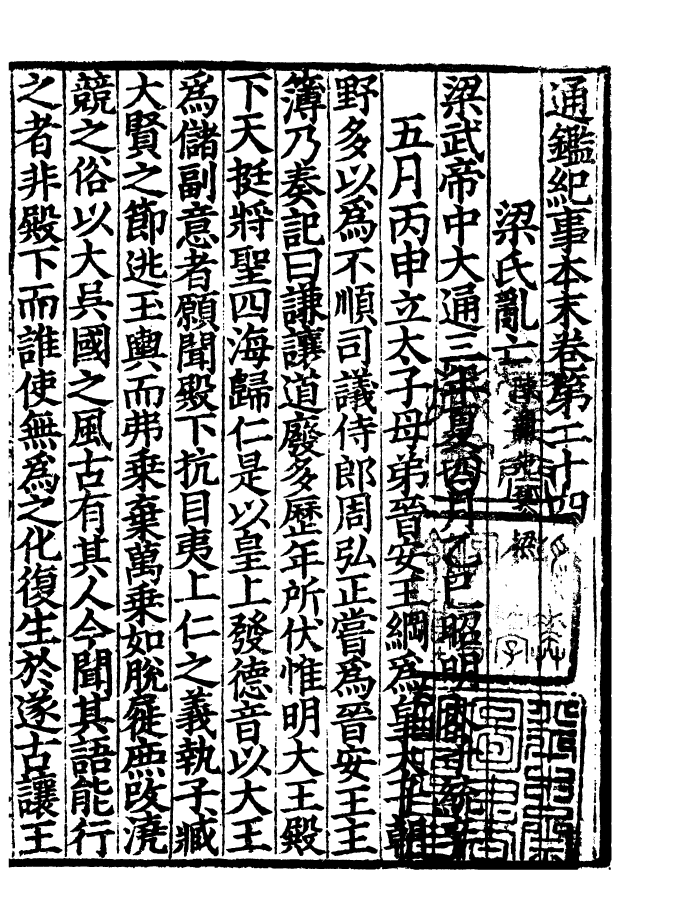 通鑑紀事本末卷第二十四
梁氏亂亡
梁武帝中大通三年夏四月乙巳昭明太子統卒
五月丙申立太子母弟晉安王綱為皇太子朝
野多以為不順司議侍郎周弘正嘗為晉安王主
簿乃奏記曰謙讓道廢多歷年所伏惟明大王殿
下天挺將聖四海歸仁是以皇上發德音以大王
為儲副意者願聞殿下抗目夷上仁之義執子臧
大賢之節逃玉輿而弗乗棄萬乗如脫屣庶改澆
競之俗以大吳國之風古有其人今聞其語能行
之者非殿下而誰使無為之化復生於遂古讓王